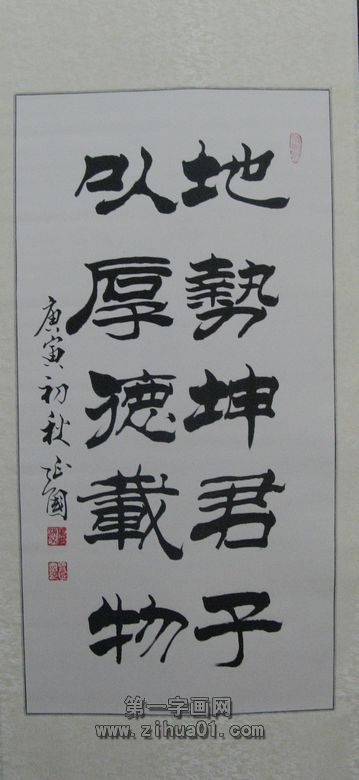 地勢坤君子
以厚德載物
庚寅初秋
第一字画网
www.zihua01.com